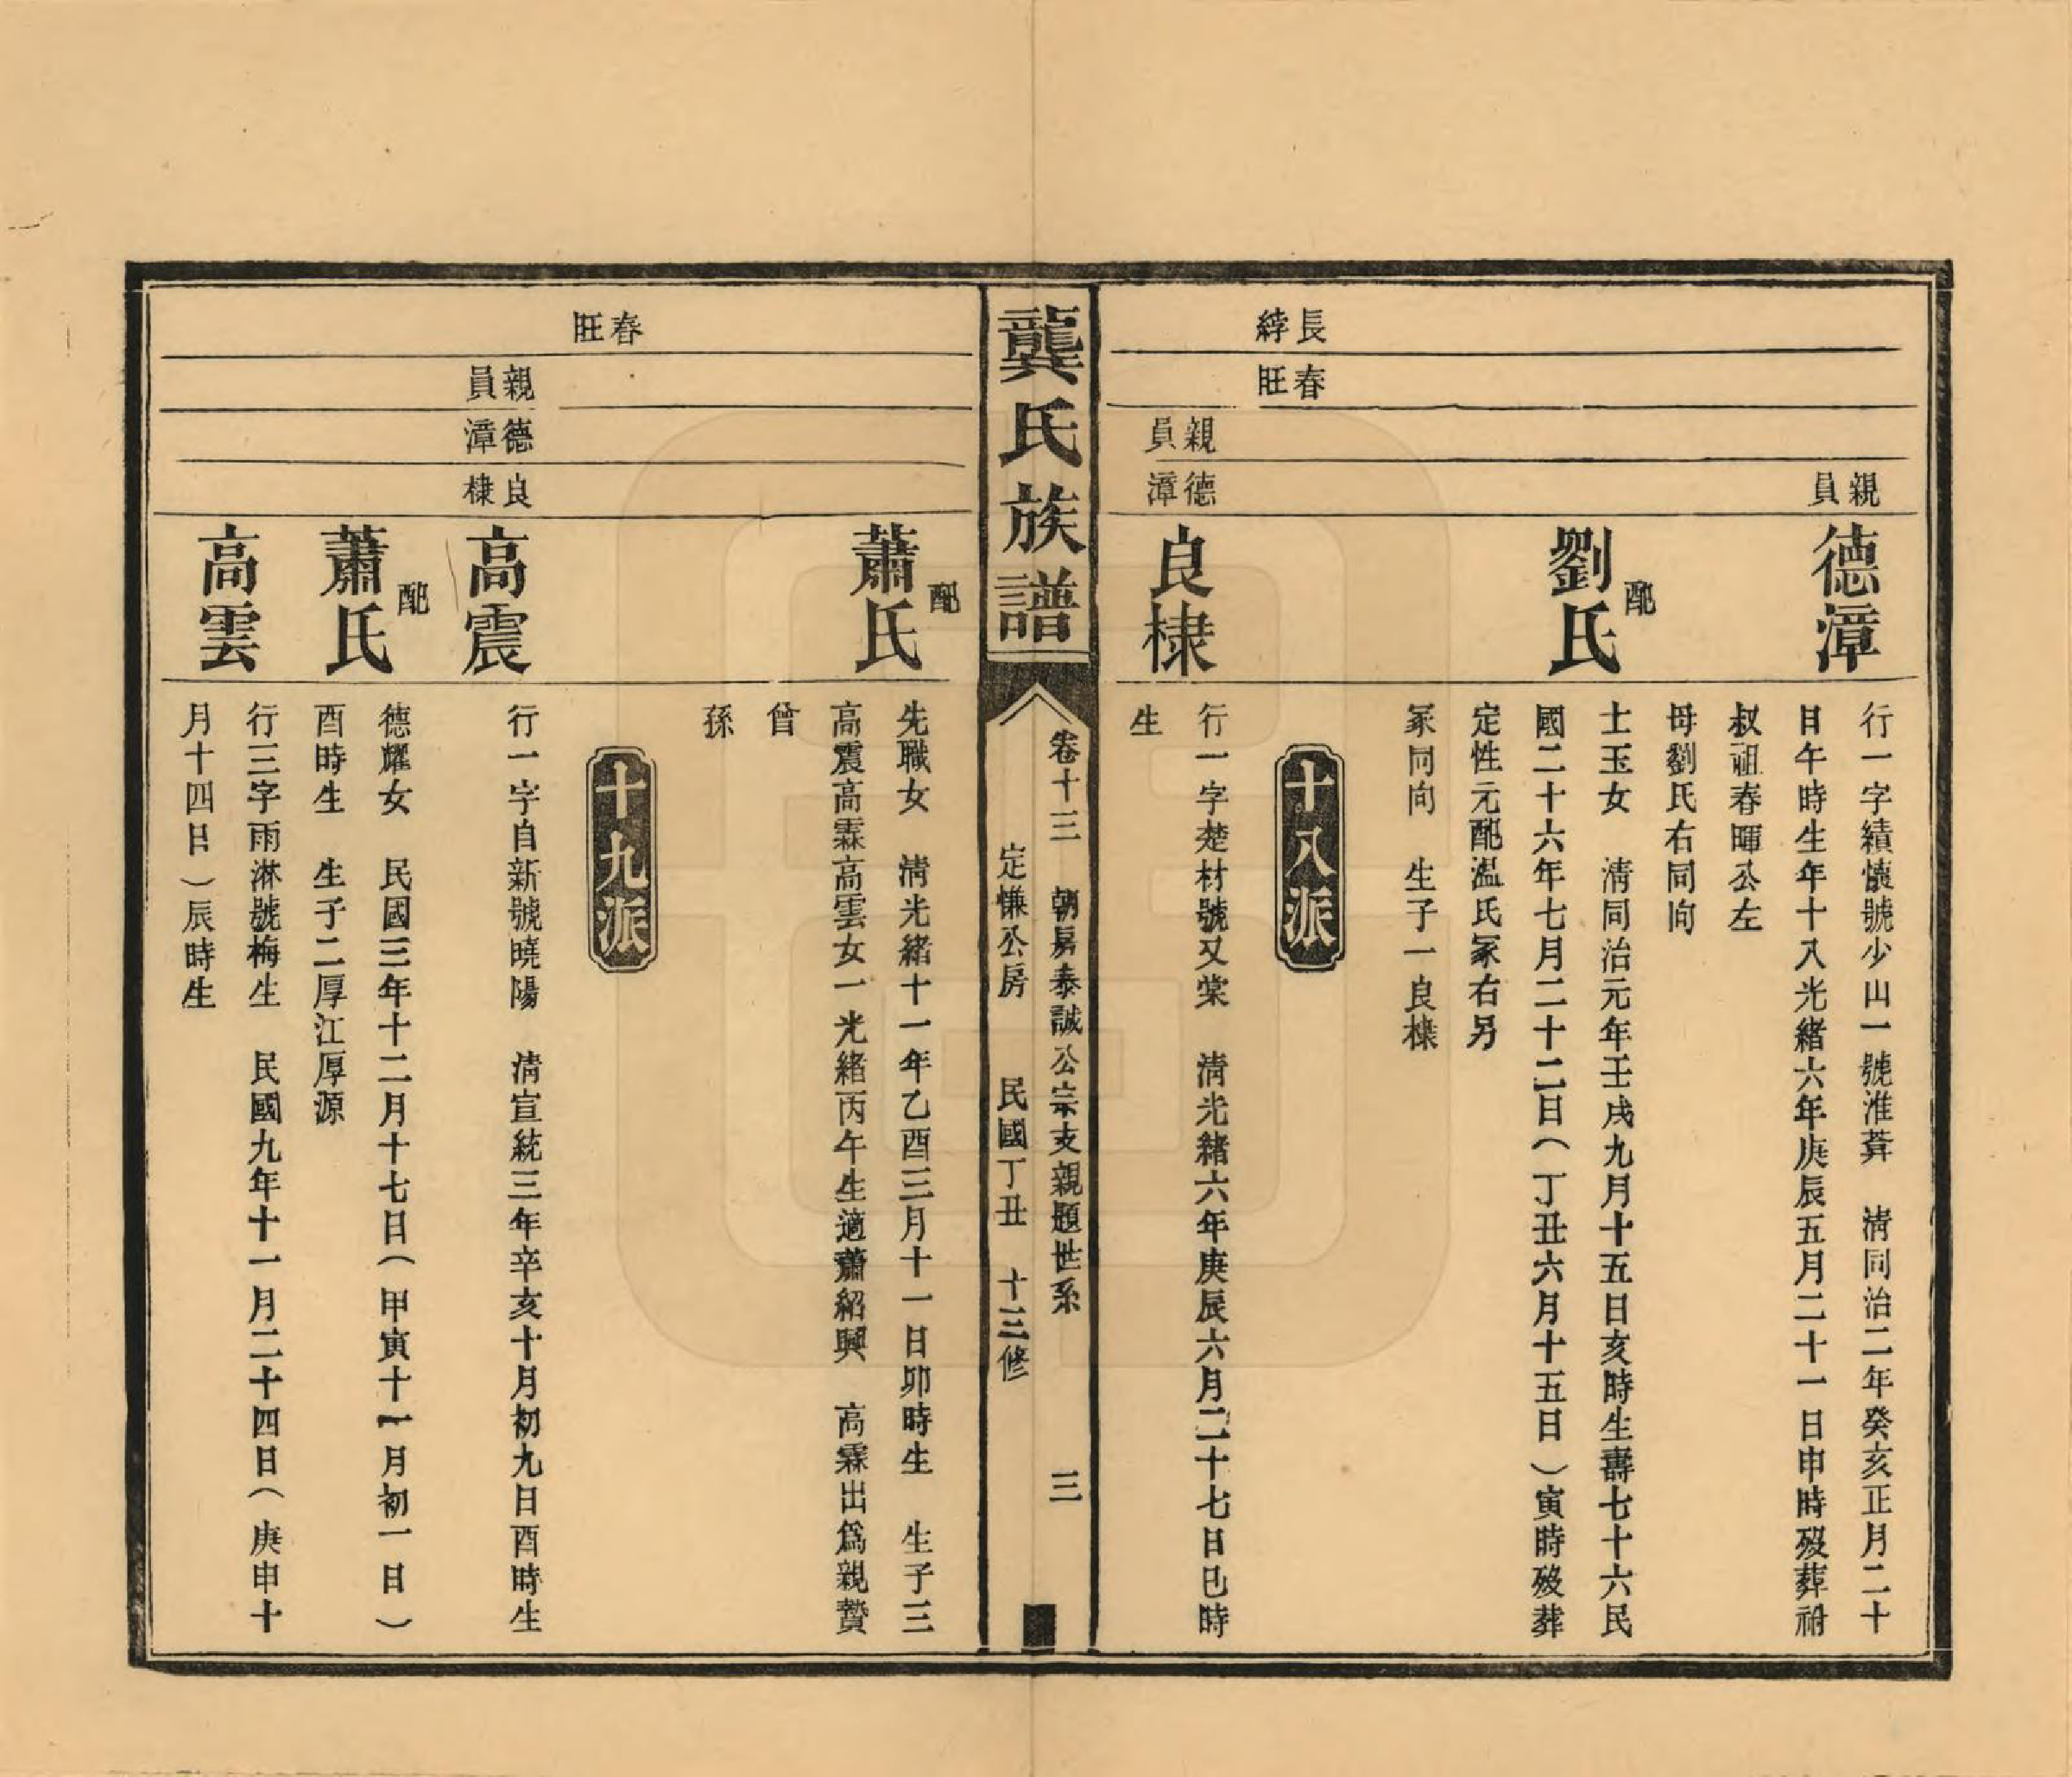 親員
德漳
行一字績懷號少山一號淮葊　清同治二年癸亥正月二十
日午時生年十八光緒六年庚辰五月二十一日申時歿葬祔
叔祖春暉公左
母劉氏右同向
配
劉氏
士玉女　清同治元年壬戌九月十五日亥時生壽七十六民
國二十六年七月二十二日（丁丑六月十五日）寅時歿葬
定性元配溫氏冢右另
冢同向　生子一良棣
長綍
春旺
十八派
親員
德漳
良棣
行一字楚材號又棠　清光緒六年庚辰六月二十七日巳時
生
龔氏族譜
卷十三　朝房泰誠公宗支親題世系　三
定慊公房　民國丁丑　十三修
配
蕭氏
先職女　清光緒十一年乙酉三月十一日卯時生　生子三
高震高霖高雲女一光緒丙午生適蕭紹興　高霖出爲親贊
曾
孫
春旺
十九派
親員
德漳
良棣
高震
行一字自新號曉陽　清宣統三年辛亥十月初九日酉時生
配
蕭氏
德耀女　民國三年十二月十七日（甲寅十一月初一日）
酉時生　生子二厚江厚源
高雲
行三字雨淋號梅生　民國九年十一月二十四日（庚申十
月十四日）辰時生